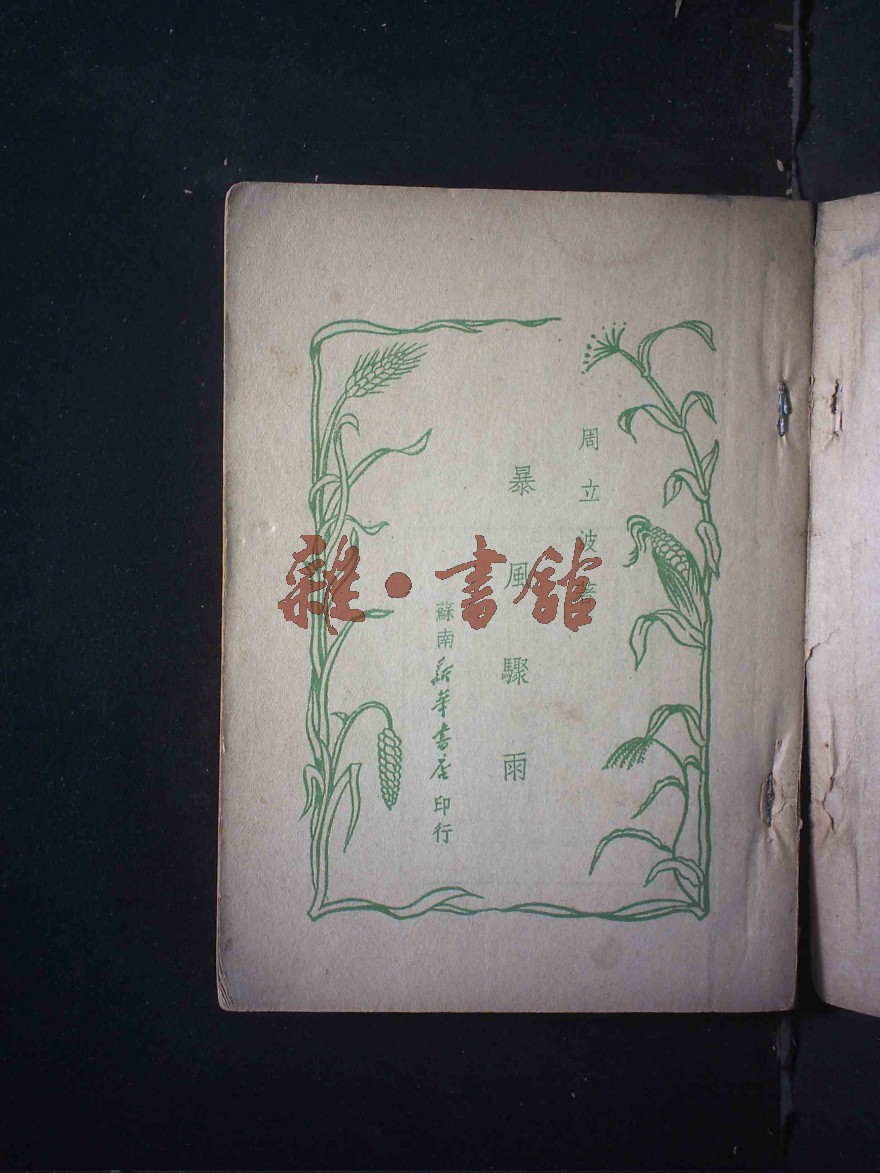 周立波著
暴風驟雨
蘇南新華書店印行
雜·書館